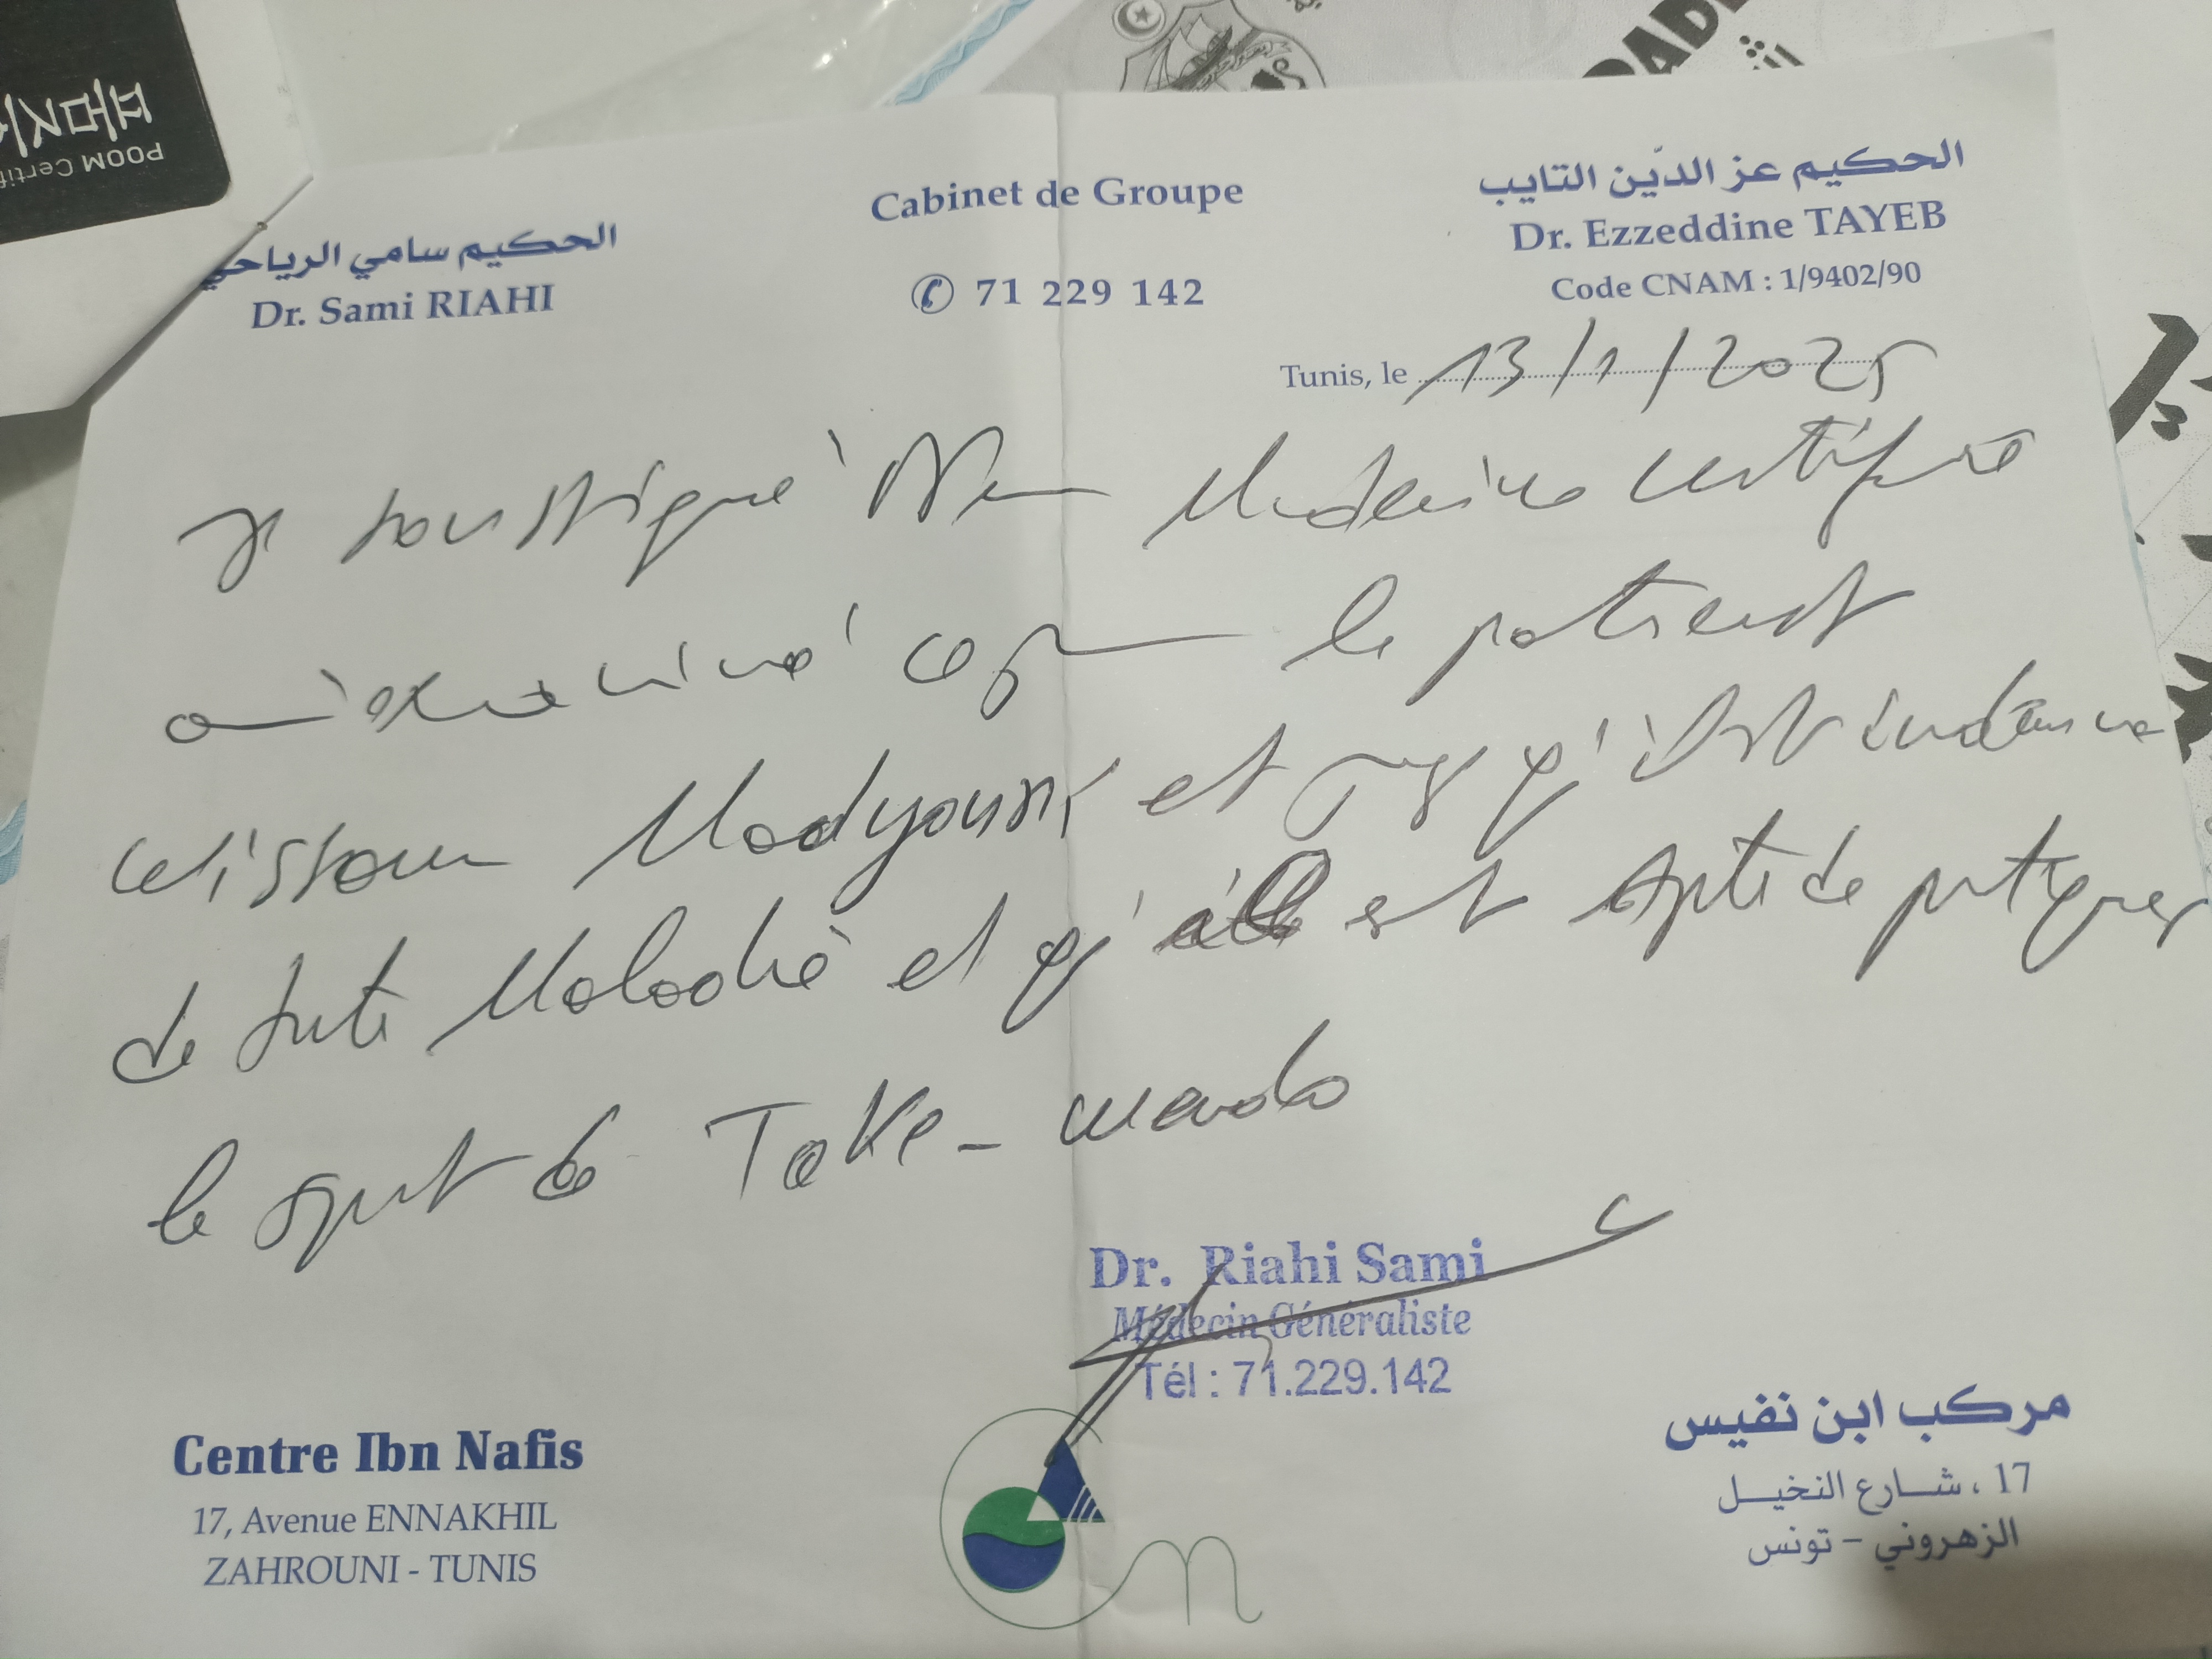 태권
POOM Certifi
الحكيم سامي الرياحي
Dr. Sami RIAHI
Cabinet de Groupe
✆ 71 229 142
الحكيم عز الدّين التايب
Dr. Ezzeddine TAYEB
Code CNAM : 1/9402/90
Tunis, le 13/1/2025
Je soussigné Médecin certifie
examiné ce jour le patient
Madyouni et qu'il est indemne
de toute Maladie et qu'il est apte de pratiquer
le sport de Take-wando
Dr. Riahi Sami
Médecin Généraliste
Tél : 71.229.142
Centre Ibn Nafis
17, Avenue ENNAKHIL
ZAHROUNI - TUNIS
مركب ابن نفيس
17 ، شارع النخيل
الزهروني - تونس